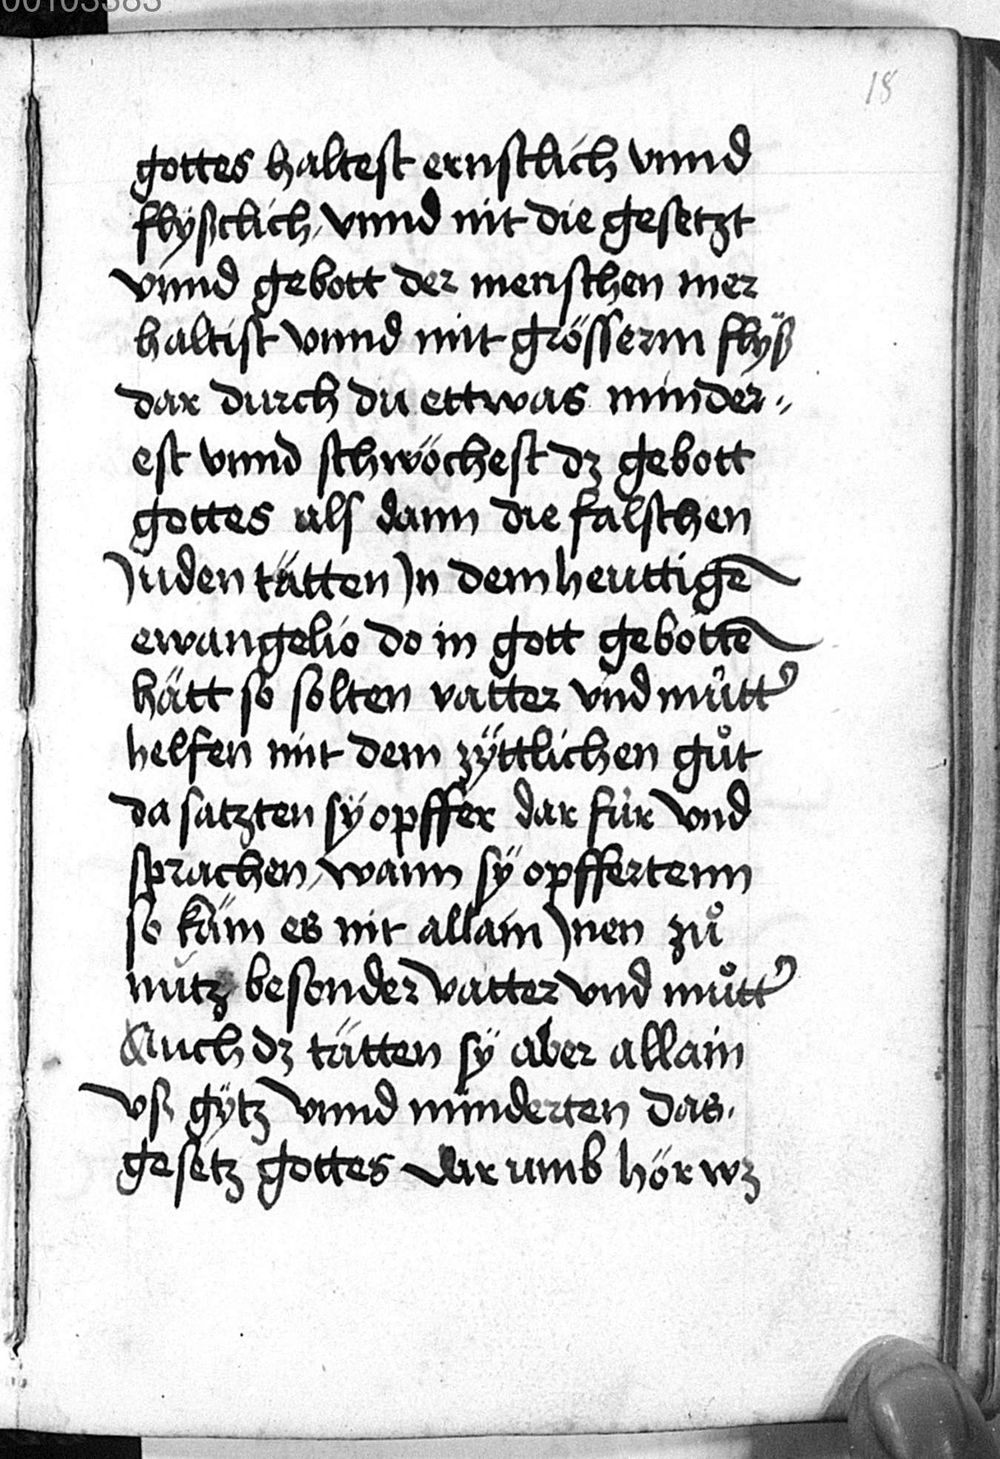 00103383
18
gottes haltest ernstlich vnnd
flÿßclich, vnnd nit die gesetzt
vnnd gebott der menschen mer
haltist vnnd mit grösserm flÿß
dar durch du ettwas minder⸗
est vnnd schwöchest dz gebott
gottes als dann die falschen
Juden tätten Jn dem heuttigē
ewangelio do in gott gebottē
hätt so solten vatter vnd můtt᾽
helfen mit dem zÿttlichen gůt
da satzten sÿ opffer dar für vnd
sprachen, wann sÿ opffertenn
so käm es nit allain Jnen zů
nutz besonder vatter vnd můtt᾽
Auch dz tätten sÿ aber allain
vß gÿtz vnnd minderten das.
gesetz gottes dar umb hör wz